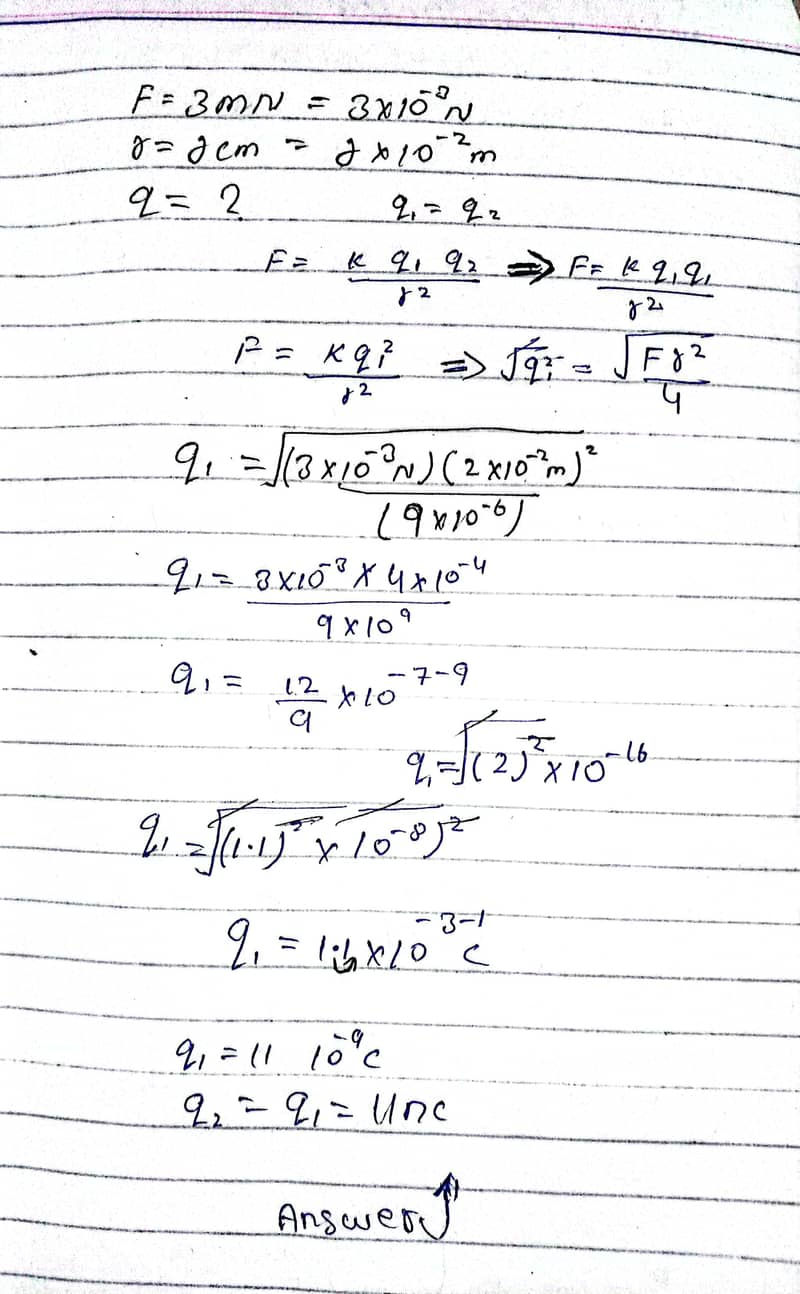 F = 3mN = 3×10⁻³N
r = 2cm = 2×10⁻²m
q = ? q₁ = q₂
F = K q₁ q₂ / r² ⇒ F = K q₁q₁ / r²
F = Kq₁² / r² ⇒ √q₁² = √(Fr² / 4)
q₁ = √((3×10⁻³N)(2×10⁻²m)² / (9×10⁻⁶))
q₁ = 3×10⁻³ × 4×10⁻⁴ / 9×10⁹
q₁ = 12/9 ×10⁻⁷⁻⁹
q₁ = √((2)² ×10⁻¹⁶
q₁ = √((1.1)² × 10⁻⁸)²
q₁ = ×10⁻³⁻¹ C
q₁ = 11 10⁻⁹C
q₂ = q₁ = 11nc
Answer